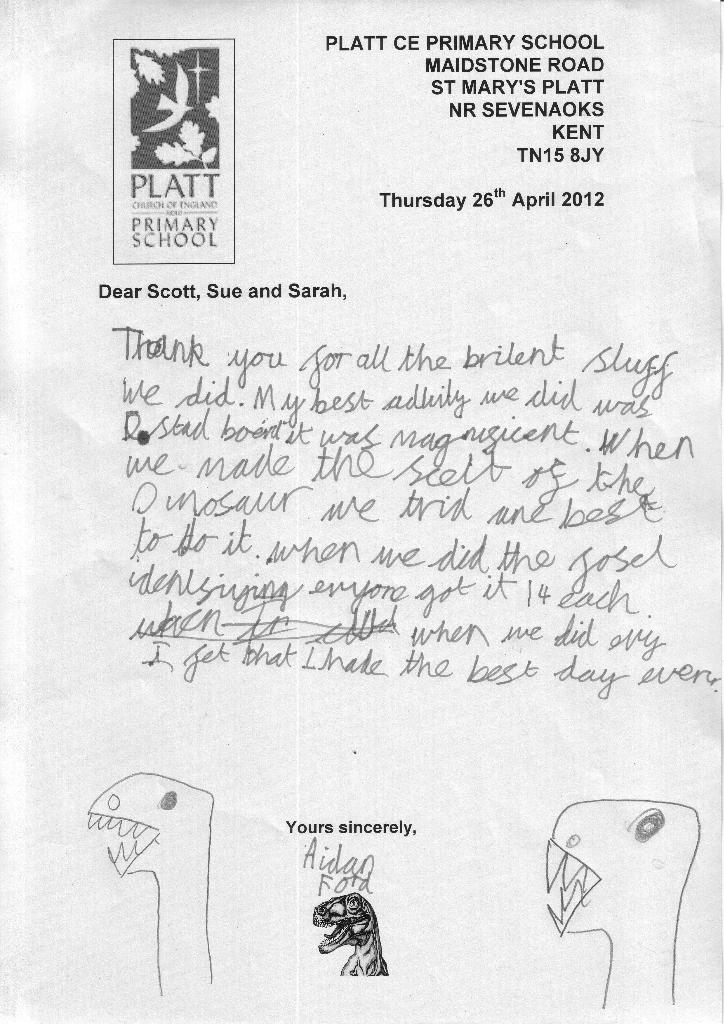 PLATT
CHURCH OF ENGLAND
PRIMARY
SCHOOL
PLATT CE PRIMARY SCHOOL
MAIDSTONE ROAD
ST MARY'S PLATT
NR SEVENAOKS
KENT
TN15 8JY
Thursday 26th April 2012
Dear Scott, Sue and Sarah,
Thank you for all the brilent stuff
We did. My best we did was
stad board it was magnificent. When
we made the of the
Dinosaur we trid best
to do it. when we did the fosel
got it 14 each
when we did evry
I that I hade the best day ever.
Yours sincerely,
Aidan
Ford